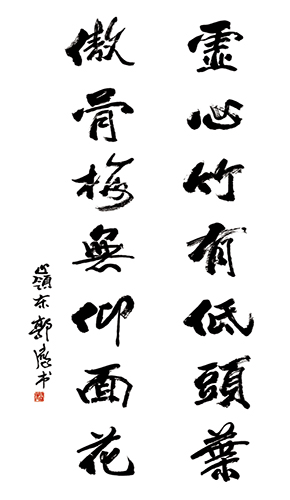 虛心竹有低頭葉
傲骨梅無仰面花
嶺东郭應书